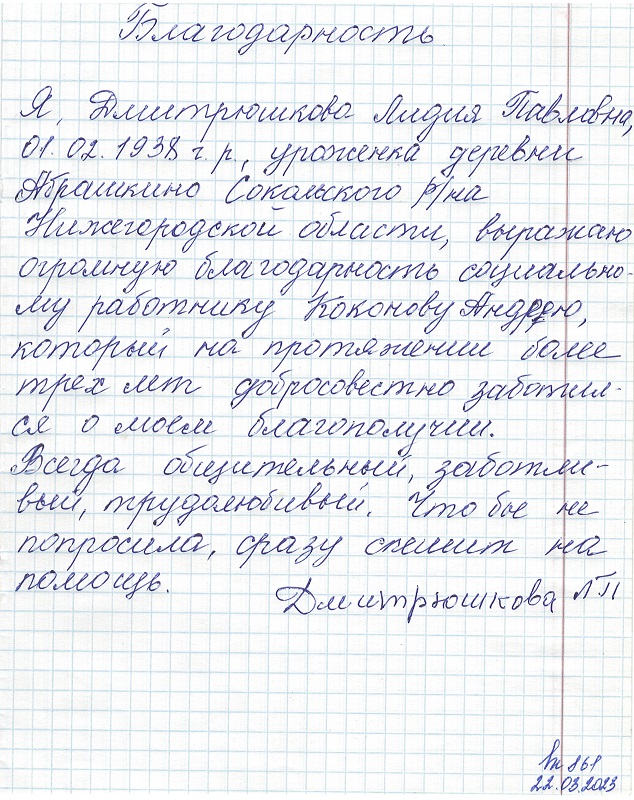 Благодарность
Я, Дмитрюшкова Лидия Павловна,
01.02.1938 г.р, уроженка деревни
Абрашкино Сокольского р/на
Нижегородской области, выражаю
огромную благодарность социально-
му работнику Коконову Андрею,
который на протяжении более
трех лет добросовестно заботил-
ся о моем благополучии.
Всегда общительный, заботли-
вый, трудолюбивый. Что бы не
попросила, сразу спешит на
помощь.
Дмитрюшкова ЛП
Вх 861
22.03.2023